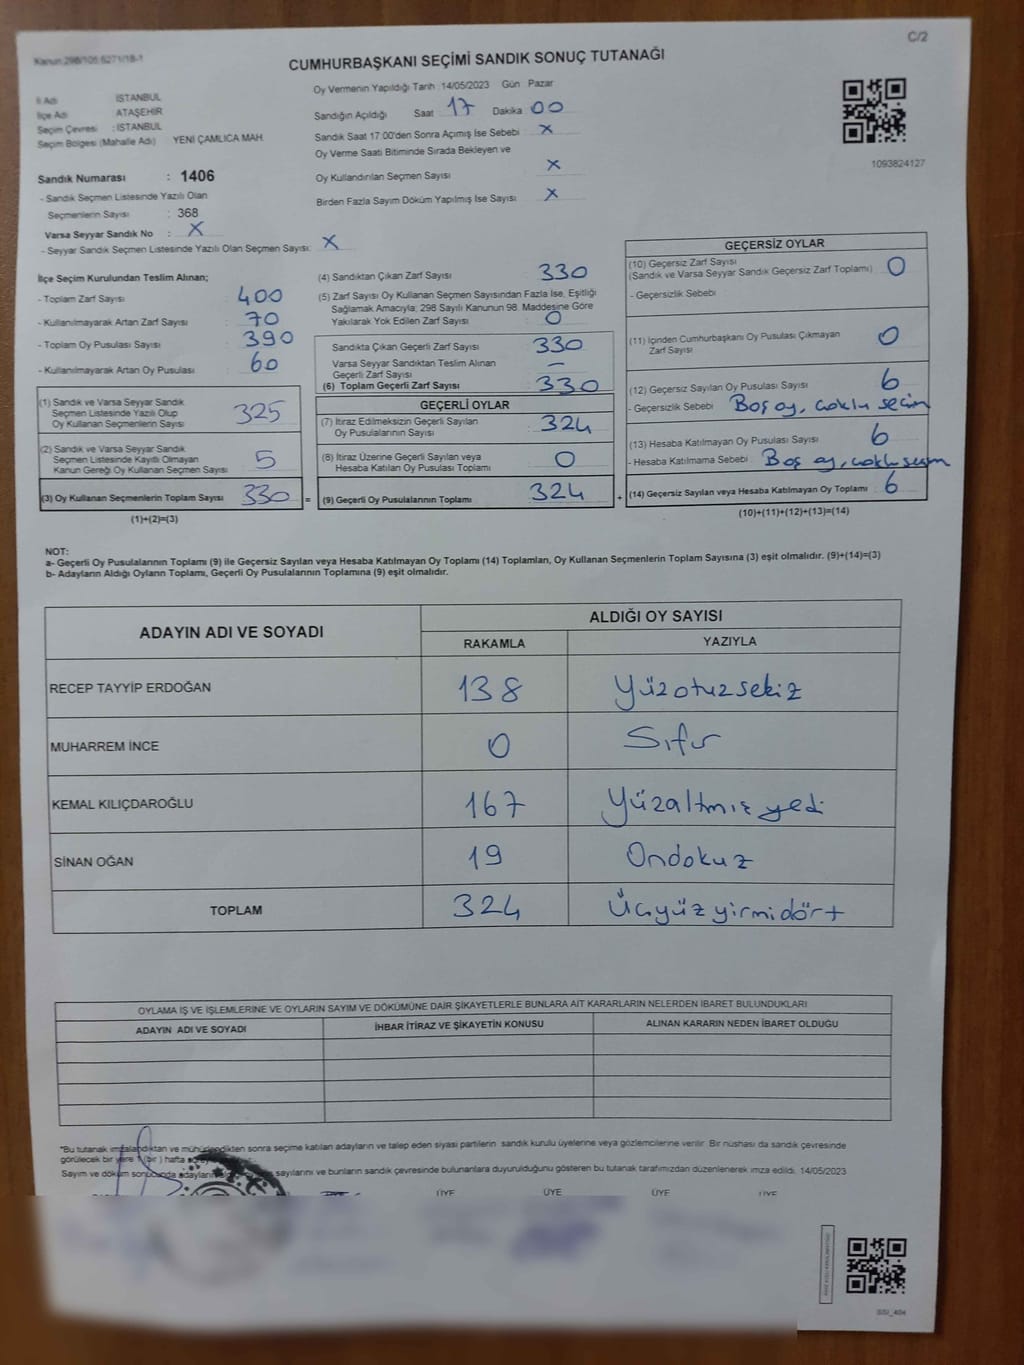 C/2
Kanun:298/105 6271/18-1
CUMHURBAŞKANI SEÇİMİ SANDIK SONUÇ TUTANAĞI
Oy Vermenin Yapıldığı Tarih :14/05/2023 Gün Pazar
İl Adı İSTANBUL
İlçe Adı ATAŞEHİR
Seçim Çevresi : İSTANBUL
Seçim Bölgesi (Mahalle Adı) YENİ ÇAMLICA MAH.
Sandığın Açıldığı Saat 17 Dakika 00
Sandık Saat 17:00'den Sonra Açımış İse Sebebi : X
Oy Verme Saati Bitiminde Sırada Bekleyen ve
Oy Kullandırılan Seçmen Sayısı X
Birden Fazla Sayım Döküm Yapılmış İse Sayısı : X
1093824127
Sandık Numarası : 1406
- Sandık Seçmen Listesinde Yazılı Olan
Seçmenlerin Sayısı : 368
Varsa Seyyar Sandık No : X
- Seyyar Sandık Seçmen Listesinde Yazılı Olan Seçmen Sayısı: X
İlçe Seçim Kurulundan Teslim Alınan;
- Toplam Zarf Sayısı : 400
- Kullanılmayarak Artan Zarf Sayısı : 70
- Toplam Oy Pusulası Sayısı : 390
- Kullanılmayarak Artan Oy Pusulası : 60
(1) Sandık ve Varsa Seyyar Sandık
Seçmen Listesinde Yazılı Olup
Oy Kullanan Seçmenlerin Sayısı 325
(2) Sandık ve Varsa Seyyar Sandık
Seçmen Listesinde Kayıtlı Olmayan
Kanun Gereği Oy Kullanan Seçmen Sayısı 5
(3) Oy Kullanan Seçmenlerin Toplam Sayısı 330 =
(1)+(2)=(3)
(4) Sandıktan Çıkan Zarf Sayısı : 330
(5) Zarf Sayısı Oy Kullanan Seçmen Sayısından Fazla İse, Eşitliği
Sağlamak Amacıyla; 298 Sayılı Kanunun 98. Maddesine Göre
Yakılarak Yok Edilen Zarf Sayısı : 0
Sandıkta Çıkan Geçerli Zarf Sayısı : 330
Varsa Seyyar Sandıktan Teslim Alınan
Geçerli Zarf Sayısı : —
(6) Toplam Geçerli Zarf Sayısı : 330
GEÇERLİ OYLAR
(7) İtiraz Edilmeksizin Geçerli Sayılan
Oy Pusulalarının Sayısı : 324
(8) İtiraz Üzerine Geçerli Sayılan veya
Hesaba Katılan Oy Pusulası Toplamı : 0
(9) Geçerli Oy Pusulalarının Toplamı : 324 +
GEÇERSİZ OYLAR
(10) Geçersiz Zarf Sayısı
(Sandık ve Varsa Seyyar Sandık Geçersiz Zarf Toplamı) : 0
- Geçersizlik Sebebi :
(11) İçinden Cumhurbaşkanı Oy Pusulası Çıkmayan
Zarf Sayısı : 0
(12) Geçersiz Sayılan Oy Pusulası Sayısı : 6
- Geçersizlik Sebebi : Boş oy, çoklu seçim
(13) Hesaba Katılmayan Oy Pusulası Sayısı : 6
- Hesaba Katılmama Sebebi : Boş oy, çoklu seçim
(14) Geçersiz Sayılan veya Hesaba Katılmayan Oy Toplamı : 6
(10)+(11)+(12)+(13)=(14)
NOT:
a- Geçerli Oy Pusulalarının Toplamı (9) ile Geçersiz Sayılan veya Hesaba Katılmayan Oy Toplamı (14) Toplamları, Oy Kullanan Seçmenlerin Toplam Sayısına (3) eşit olmalıdır. (9)+(14)=(3)
b- Adayların Aldığı Oyların Toplamı, Geçerli Oy Pusulalarının Toplamına (9) eşit olmalıdır.
ADAYIN ADI VE SOYADI ALDIĞI OY SAYISI
RAKAMLA YAZIYLA
RECEP TAYYİP ERDOĞAN 138 Yüzotuzsekiz
MUHARREM İNCE 0 Sıfır
KEMAL KILIÇDAROĞLU 167 Yüzaltmışyedi
SİNAN OĞAN 19 Ondokuz
TOPLAM 324 Üçyüzyirmidört
OYLAMA İŞ VE İŞLEMLERİNE VE OYLARIN SAYIM VE DÖKÜMÜNE DAİR ŞİKAYETLERLE BUNLARA AİT KARARLARIN NELERDEN İBARET BULUNDUKLARI
ADAYIN ADI VE SOYADI İHBAR İTİRAZ VE ŞİKAYETİN KONUSU ALINAN KARARIN NEDEN İBARET OLDUĞU
*Bu tutanak imzalandıktan ve mühürlendikten sonra seçime katılan adayların ve talep eden siyasi partilerin sandık kurulu üyelerine veya gözlemcilerine verilir. Bir nüshası da sandık çevresinde
görülecek bir yere 1 (bir) hafta
Sayım ve döküm sonucunda adayların sayılarını ve bunların sandık çevresinde bulunanlara duyurulduğunu gösteren bu tutanak tarafımızdan düzenlenerek imza edildi. 14/05/2023
ÜYE ÜYE ÜYE ÜYE